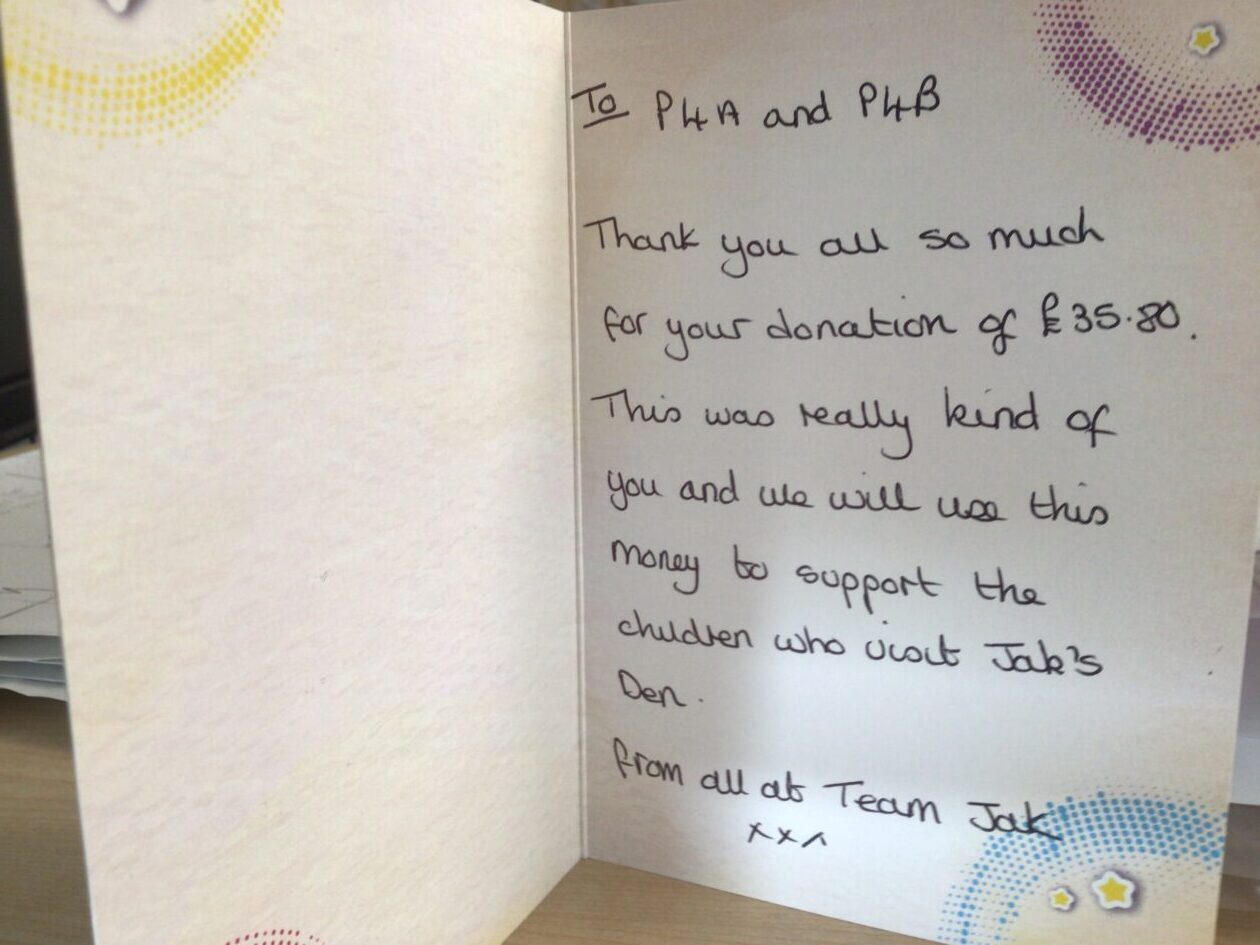 To P4A and P4B
Thank you all so much
for your donation of £35.80.
This was really kind of
you and we will use this
money to support the
children who visit Jak's
Den.
from all at Team Jak
xxx